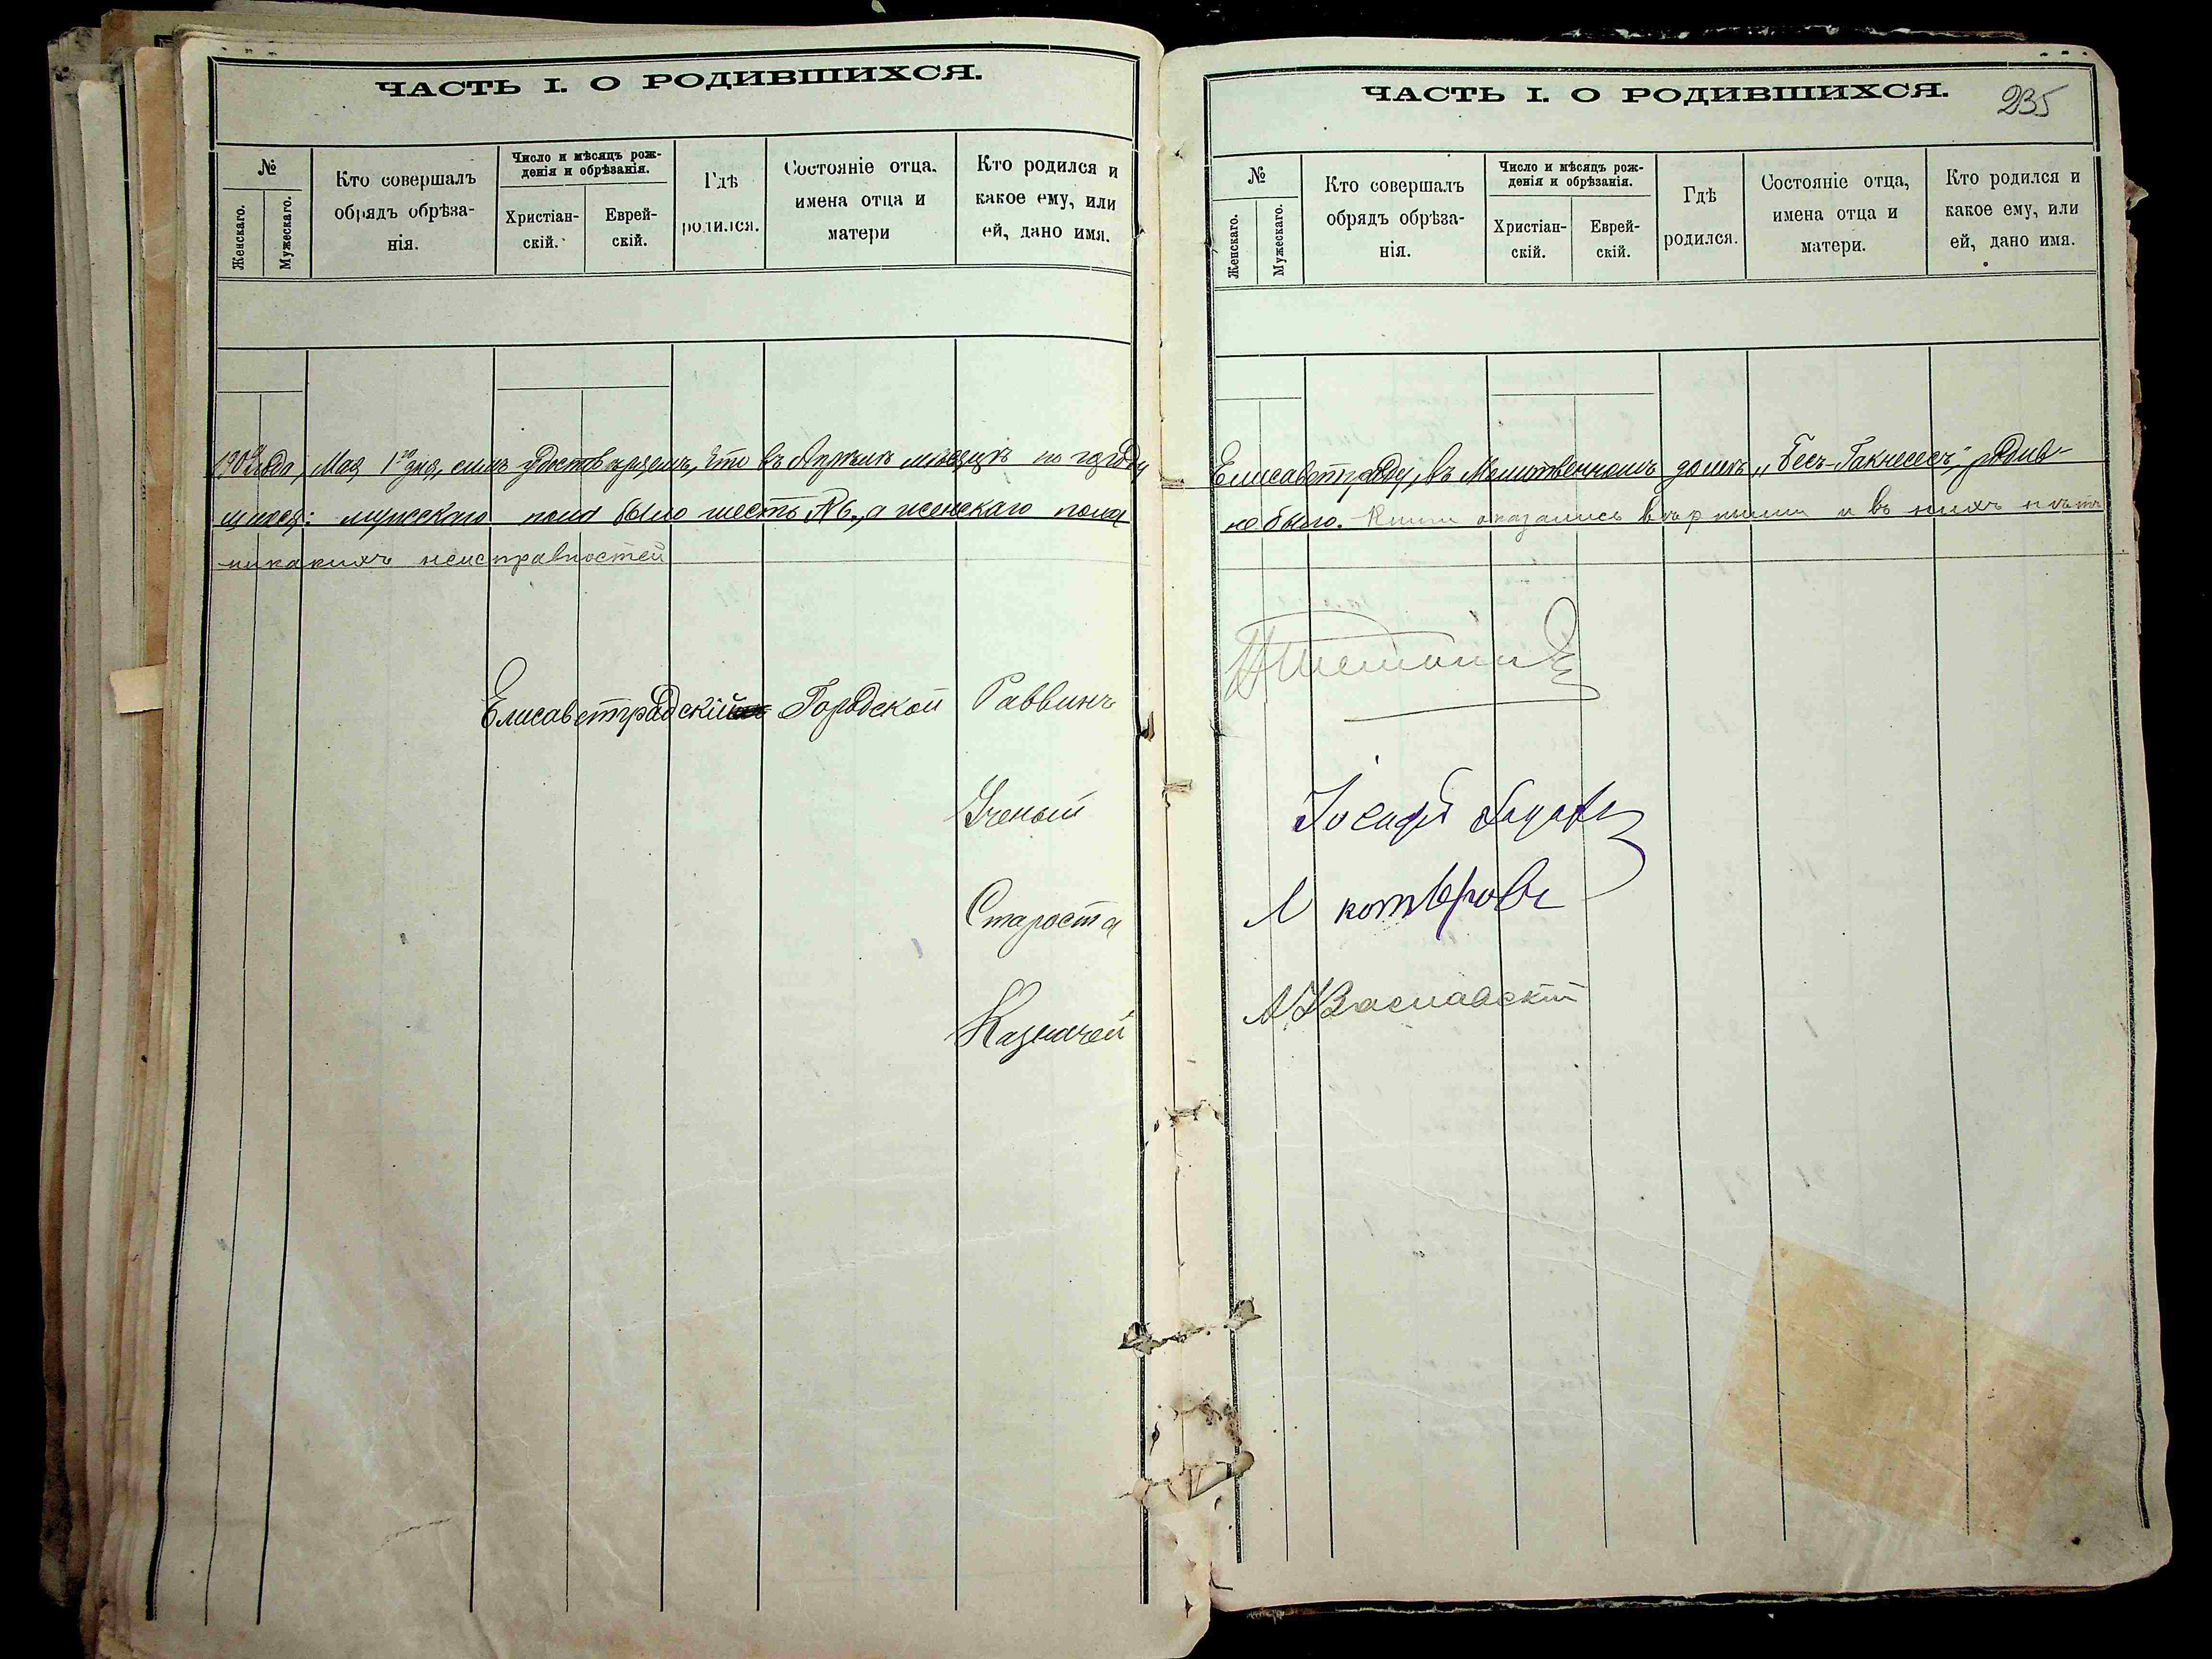 ЧАСТЬ I. О РОДИВШИХСЯ.
№
Женскаго.
Мужескаго.
Кто совершалъ
обрядъ обрѣза-
нія.
Число и мѣсяцъ рож-
денія и обрѣзанія.
Христіан-
скій.
Еврей-
скій.
Гдѣ
родился.
Состояніе отца,
имена отца и
матери
Кто родился и
какое ему, или
ей, дано имя.
года, Мая 1го дня, симъ удостовѣряемъ, что въ Апрѣлѣ мѣсяцѣ по городу
шихся: мужескаго пола было шесть №6, а женскаго пола
никакихъ неисправностей
Елисаветградскій Городской Раввинъ
Ученый
Староста
Казначей
ЧАСТЬ I. О РОДИВШИХСЯ.
235
№
Женскаго.
Мужескаго.
Кто совершалъ
обрядъ обрѣза-
нія.
Число и мѣсяцъ рож-
денія и обрѣзанія.
Христіан-
скій.
Еврей-
скій.
Гдѣ
родился.
Состояніе отца,
имена отца и
матери.
Кто родился и
какое ему, или
ей, дано имя.
Елисаветграду, въ Молитвенномъ домѣ „Бесъ-Гакнесесъ", родив-
не было. Книги оказались вѣрными и въ нихъ нѣтъ
Заславскій